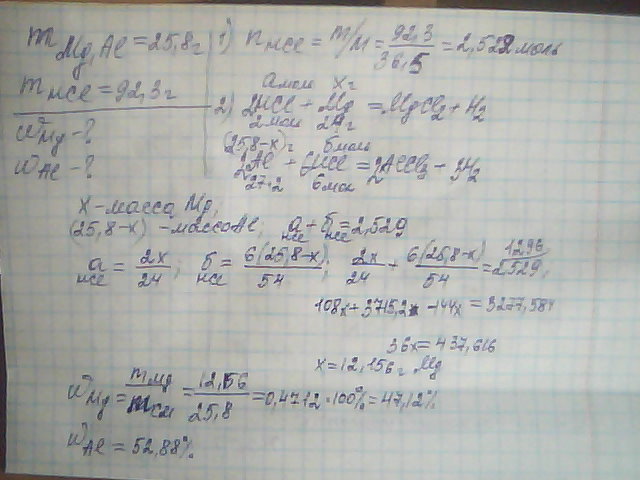 m Mg, Al = 25,8г
m HCl = 92,3г
ω Mg - ?
ω Al - ?
1) n HCl = m/M = 92,3/36,5 = 2,529 моль
а моль х г
2) 2HCl + Mg = MgCl2 + H2
2 моль 24г
(25,8-х)г б моль
2Al + 6HCl = 2AlCl3 + 3H2
27·2 6 моль
х - масса Mg,
(25,8-х) - масса Al, а HCl + б HCl = 2,529
а HCl = 2х/24; б HCl = 6(25,8-х)/54; 2х/24 + 6(25,8-х)/54 = 2,529; 1296
108х + 3715,2 - 144х = 3277,584
36х = 437,616
х = 12,156г Mg
ω Mg = m Mg/m см = 12,156/25,8 = 0,4712 · 100% = 47,12%
ω Al = 52,88%